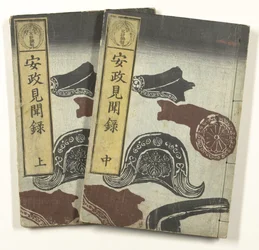 安政見聞録
上
安政見聞録
中